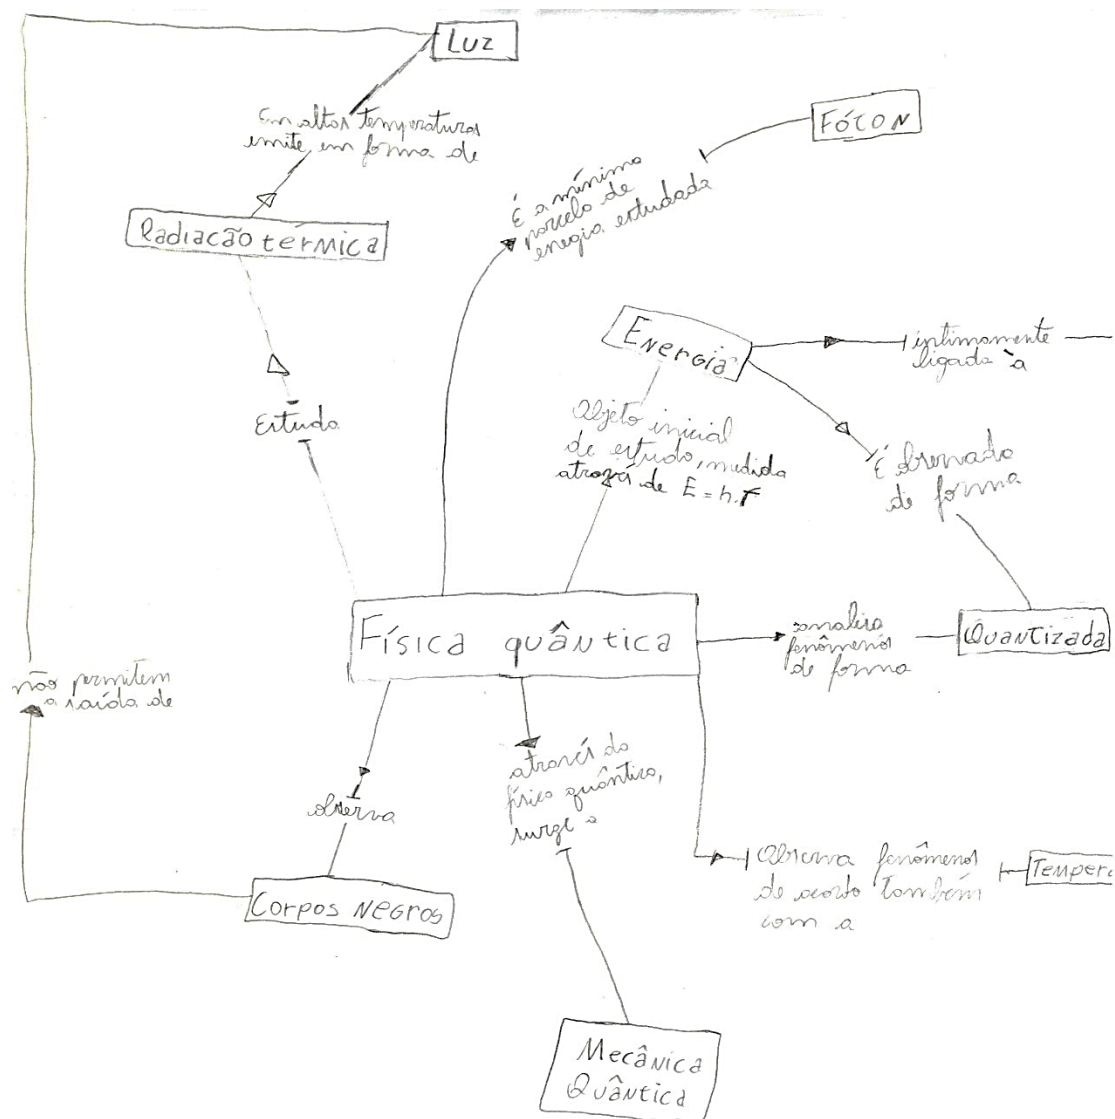 Luz
Em altas temperaturas
emite em forma de
Radiação térmica
Estuda
FÓTON
É a mínima
parcela de
enegia estudada
Energia
intimamente
ligada à
Objeto inicial
de estudo, medida
através de E = h.f
É observada
de forma
Física quântica
analisa
fenômenos
de forma
Quantizada
não permitem
a saída de
observa
Corpos Negros
através da
física quântica,
surge a
Observa fenômenos
de acordo também
com a
Temper
Mecânica
Quântica